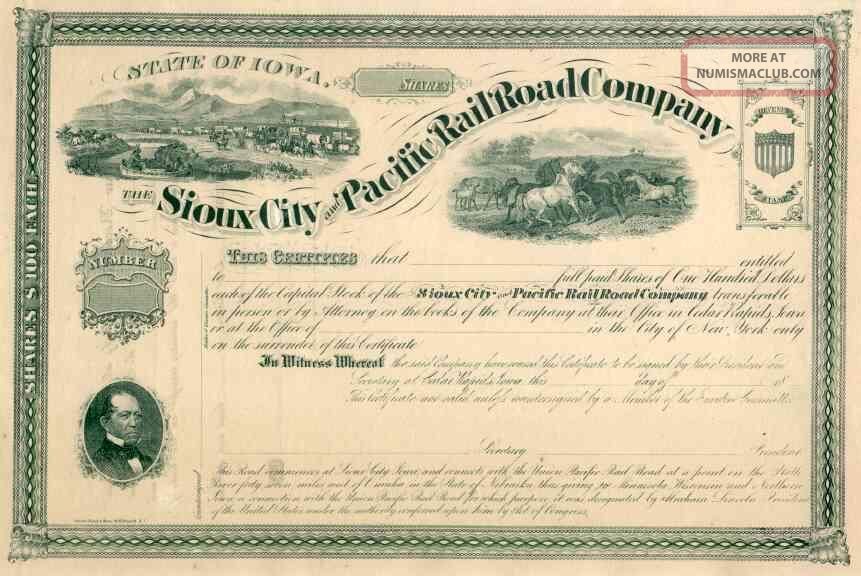 STATE OF IOWA.
SHARES
MORE AT
NUMISMACLUB.COM
REVENUE
STAMP
THE Sioux City and Pacific Rail Road Company
SHARES $100 EACH
NUMBER
THIS CERTIFIES that entitled
to full paid Shares of One Hundred Dollars
each of the Capital Stock of the Sioux City and Pacific Rail Road Company transferable
in person or by Attorney on the books of the Company at their Office in Cedar Rapids, Iowa
or at the Office of in the City of New York only
on the surrender of this Certificate
In Witness Whereof the said Company have caused this Certificate to be signed by their President and
Secretary at Cedar Rapids, Iowa this day of 18
This Certificate not valid unless countersigned by a Member of the Executive Committee
Secretary President
This Road commences at Sioux City Iowa and connects with the Union Pacific Rail Road at a point on the Platte
River forty seven miles west of Omaha in the State of Nebraska thus giving to Minnesota Wisconsin and Northern
Iowa a connection with the Union Pacific Rail Road for which purpose it was designated by Abraham Lincoln President
of the United States under the authority conferred upon him by Act of Congress.